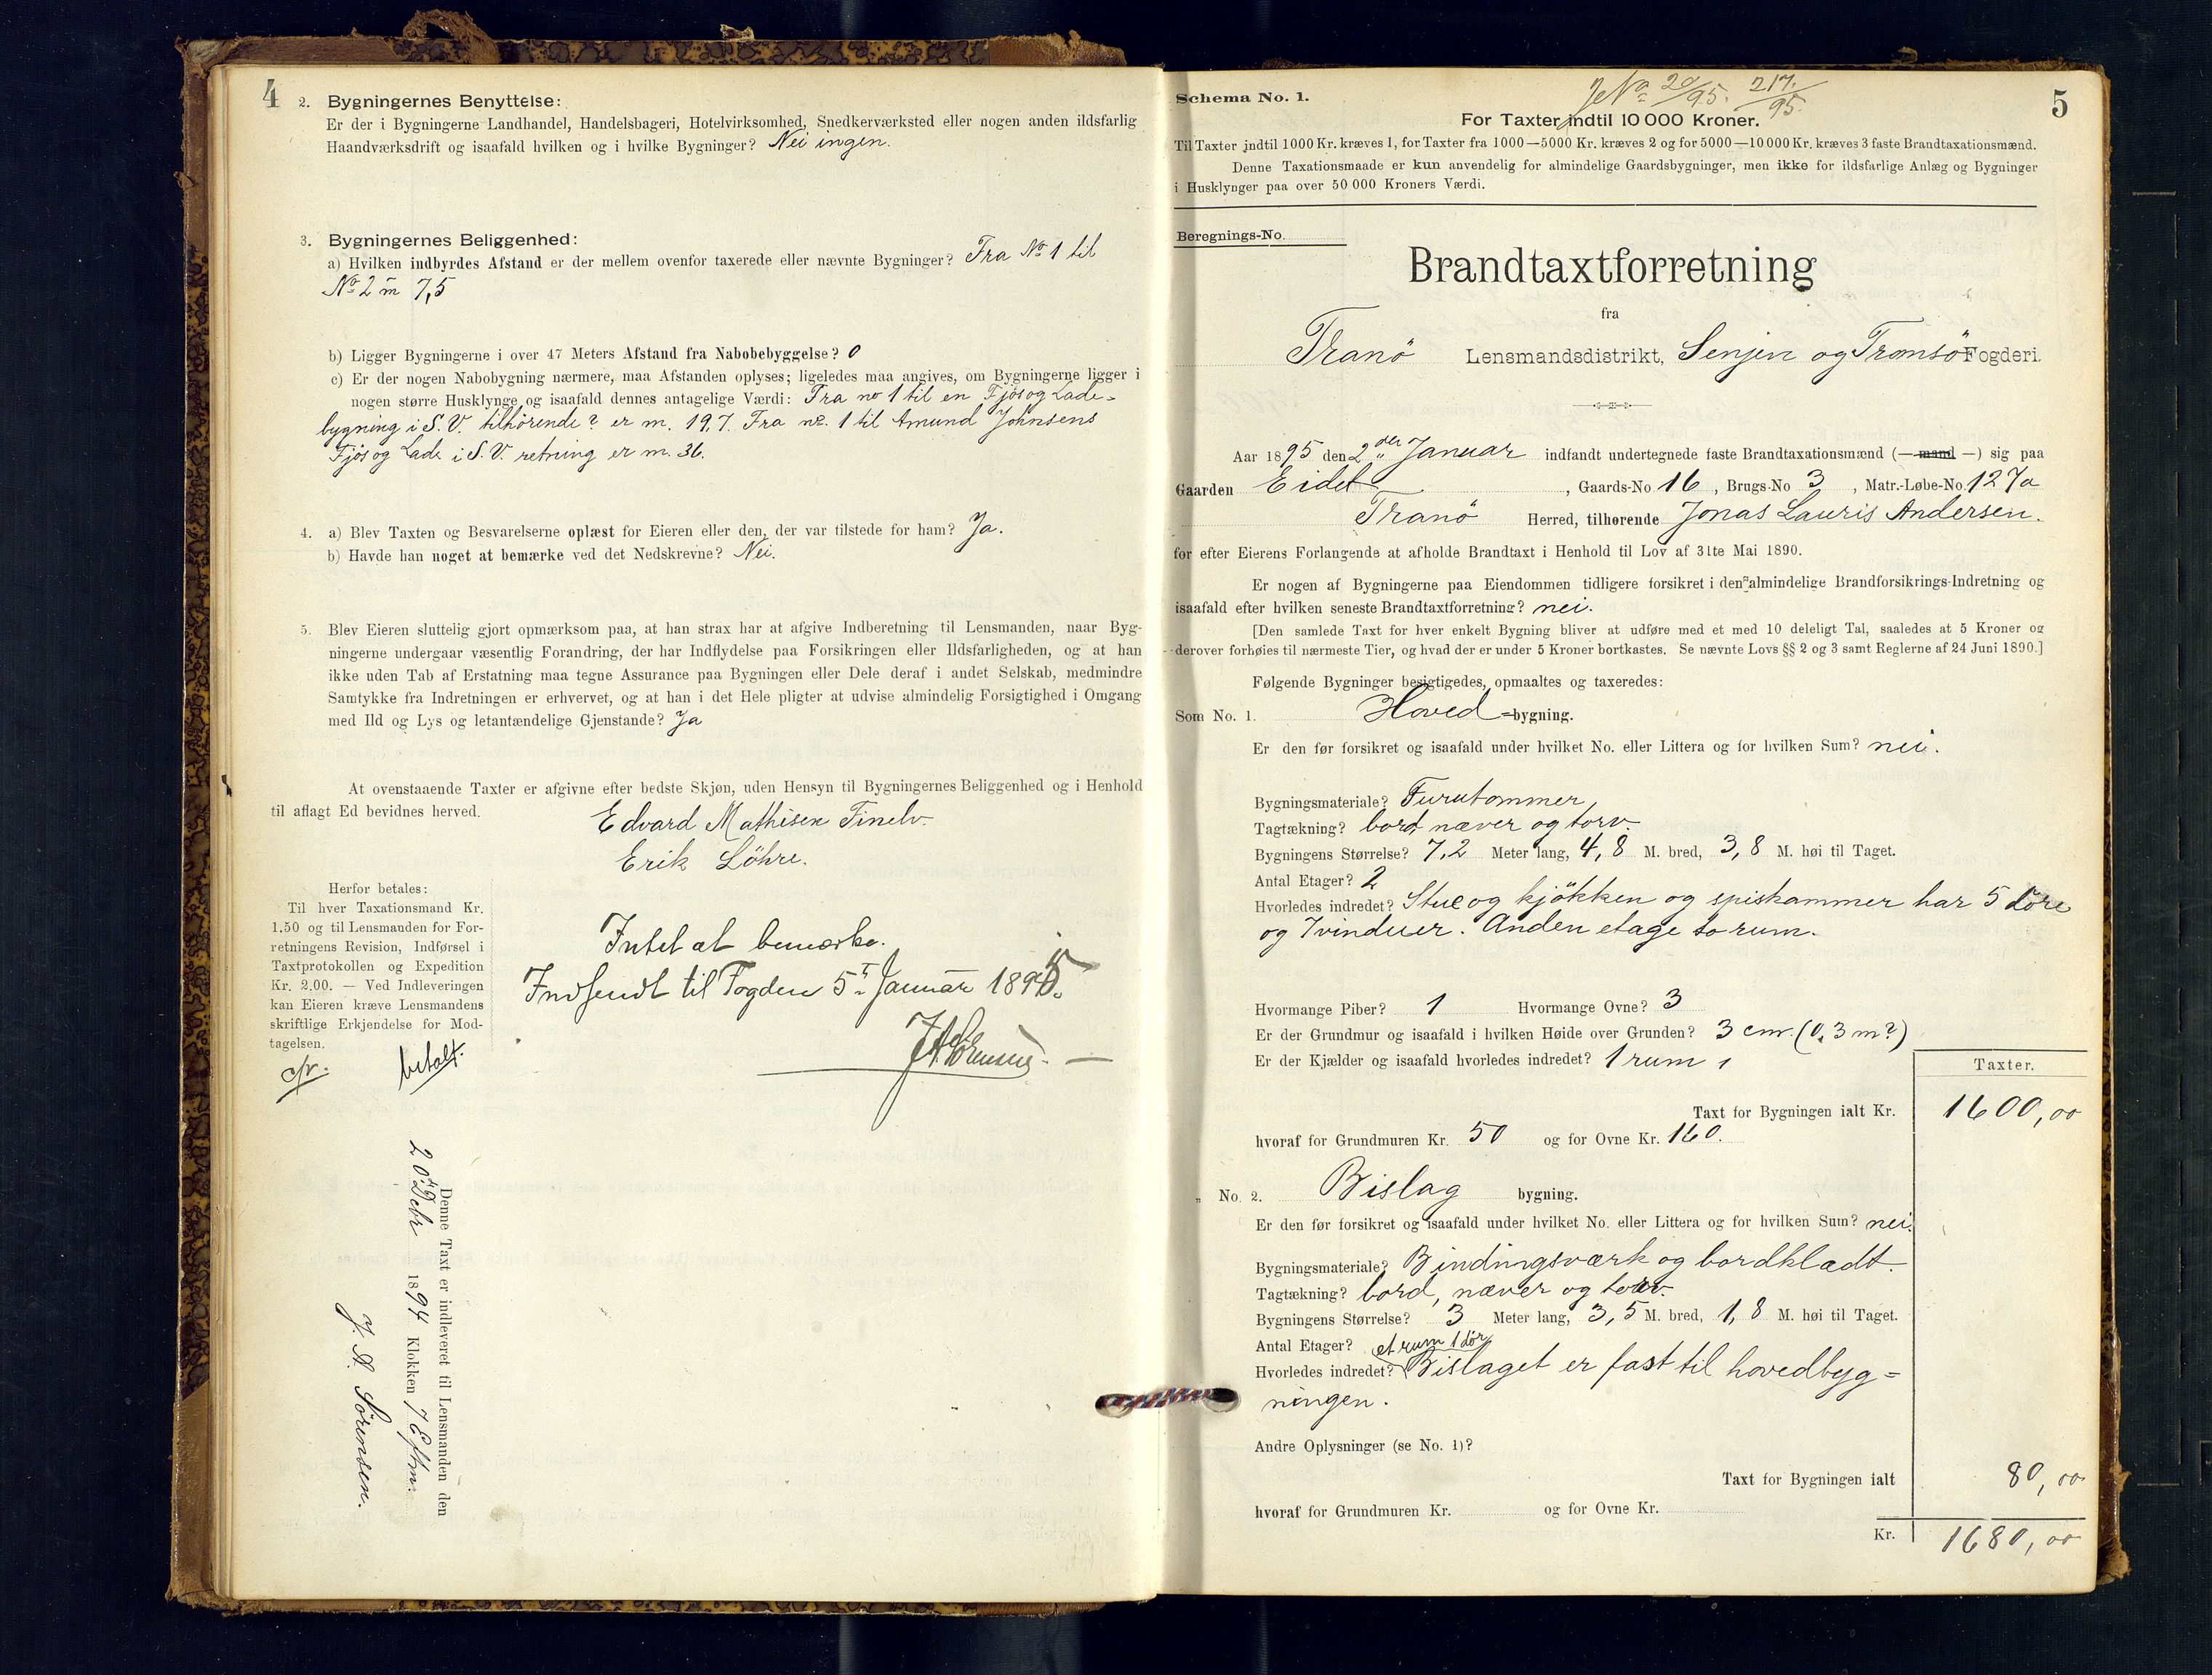 4
2. Bygningernes Benyttelse:
Er der i Bygningerne Landhandel, Handelsbageri, Hotelvirksomhed, Snedkerværksted eller nogen anden ildsfarlig
Haandværksdrift og isaafald hvilken og i hvilke Bygninger? Nei ingen.
3. Bygningernes Beliggenhed:
a) Hvilken indbyrdes Afstand er der mellem ovenfor taxerede eller nævnte Bygninger? Fra No 1 til
No 2 m 7,5
b) Ligger Bygningerne i over 47 Meters Afstand fra Nabobebyggelse? 0
c) Er der nogen Nabobygning nærmere, maa Afstanden oplyses; ligeledes maa angives, om Bygningerne ligger i
nogen større Husklynge og isaafald dennes antagelige Værdi: Fra no 1 til en Fjös og Lade-
bygning i S.V. tilhörende? er m. 19,7. Fra no. 1 til Amund Johnsens
Fjös og Lade i S.V. retning er m. 36.
4. a) Blev Taxten og Besvarelserne oplæst for Eieren eller den, der var tilstede for ham? Ja.
b) Havde han noget at bemærke ved det Nedskrevne? Nei.
5. Blev Eieren sluttelig gjort opmærksom paa, at han strax har at afgive Indberetning til Lensmanden, naar Byg-
ningerne undergaar væsentlig Forandring, der har Indflydelse paa Forsikringen eller Ildsfarligheden, og at han
ikke uden Tab af Erstatning maa tegne Assurance paa Bygningen eller Dele deraf i andet Selskab, medmindre
Samtykke fra Indretningen er erhvervet, og at han i det Hele pligter at udvise almindelig Forsigtighed i Omgang
med Ild og Lys og letantændelige Gjenstande? Ja
At ovenstaaende Taxter er afgivne efter bedste Skjøn, uden Hensyn til Bygningernes Beliggenhed og i Henhold
til aflagt Ed bevidnes herved.
Edvard Mathisen Finelv.
Erik Löhre.
Herfor betales:
Til hver Taxationsmand Kr.
1.50 og til Lensmanden for For-
retningens Revision, Indførsel i
Taxtprotokollen og Expedition
Kr. 2.00. — Ved Indleveringen
kan Eieren kræve Lensmandens
skriftlige Erkjendelse for Mod-
tagelsen.
betalt.
Intet at bemærke.
Indsendt til Fogden 5t Januar 1895.
JASörensen.
Denne Taxt er indleveret til Lensmanden den
20de Debr 1894 Klokken 7 Eftm.
J. A. Sörensen.
Schema No. 1.
JNo 20/95. 217/95.
5
For Taxter indtil 10 000 Kroner.
Til Taxter jndtil 1000 Kr. kræves 1, for Taxter fra 1000—5000 Kr. kræves 2 og for 5000—10000 Kr. kræves 3 faste Brandtaxationsmænd.
Denne Taxationsmaade er kun anvendelig for almindelige Gaardsbygninger, men ikke for ildsfarlige Anlæg og Bygninger
i Husklynger paa over 50 000 Kroners Værdi.
Beregnings-No.
Brandtaxtforretning
fra
Tranö Lensmandsdistrikt, Senjen og Tromsö Fogderi.
Aar 1895 den 2den Januar indfandt undertegnede faste Brandtaxationsmænd (— mand —) sig paa
Gaarden Eidet, Gaards-No. 16, Brugs-No 3, Matr.-Løbe-No. 127a
Tranö Herred, tilhørende Jonas Lauris Andersen.
for efter Eierens Forlangende at afholde Brandtaxt i Henhold til Lov af 31te Mai 1890.
Er nogen af Bygningerne paa Eiendommen tidligere forsikret i den almindelige Brandforsikrings-Indretning og
isaafald efter hvilken seneste Brandtaxtforretning? nei.
[Den samlede Taxt for hver enkelt Bygning bliver at udføre med et med 10 deleligt Tal, saaledes at 5 Kroner og
derover forhøies til nærmeste Tier, og hvad der er under 5 Kroner bortkastes. Se nævnte Lovs §§ 2 og 3 samt Reglerne af 24 Juni 1890.]
Følgende Bygninger besigtigedes, opmaaltes og taxeredes:
Som No. 1. Hoved-bygning.
Er den før forsikret og isaafald under hvilket No. eller Littera og for hvilken Sum? nei.
Bygningsmateriale? Furutømmer,
Tagtækning? bord, næver og torv.
Bygningens Størrelse? 7,2 Meter lang, 4,8 M. bred, 3,8 M. høi til Taget.
Antal Etager? 2
Hvorledes indredet? Stue og kjökken og spiskammer har 5 döre
og 7 vinduer. Anden etage to rum.
Hvormange Piber? 1 Hvormange Ovne? 3
Er der Grundmur og isaafald i hvilken Høide over Grunden? 3 cm. (0,3 m?)
Er der Kjælder og isaafald hvorledes indredet? 1 rum,
Taxter.
Taxt for Bygningen ialt Kr. 1600,00
hvoraf for Grundmuren Kr. 50 og for Ovne Kr. 160.
„ No. 2. Bislag bygning.
Er den før forsikret og isaafald under hvilket No. eller Littera og for hvilken Sum? nei.
Bygningsmateriale? Bindingsværk og bordklædt.
Tagtækning? bord, næver og torv.
Bygningens Størrelse? 3 Meter lang, 3,5 M. bred, 1,8 M. høi til Taget.
Antal Etager? et rum 1 dör
Hvorledes indredet? Bislaget er fast til hovedbyg-
ningen.
Andre Oplysninger (se No. 1)?
Taxt for Bygningen ialt 80,00
hvoraf for Grundmuren Kr. og for Ovne Kr.
Kr. 1680,00